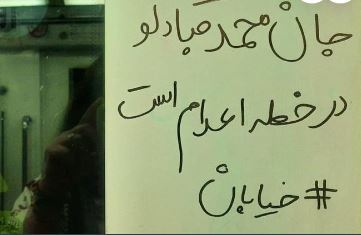 جان محمد قبادلو
در خطر اعدام است
#خیابان